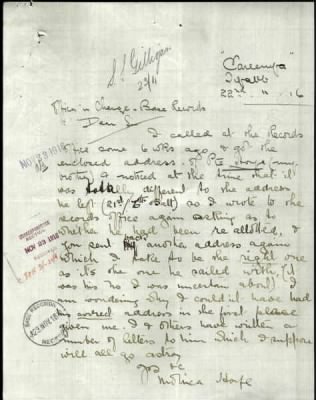 S/ Gilligan
23/11
"Careenya"
22nd " 11 " 16
Officer in Charge - Base Records
Dear Sir
I called at the Records
Office some 6 wks ago & got the
enclosed address of Pte
brother & noticed at the time that it
was totally different to the address
he left (21st / 6th Batt) so I wrote to the
records Office again asking as to
whether he had been re allotted, &
you sent back another address again
which I take to be the right one
as it's the one he sailed with, (it
was his No I was uncertain about) I
am wondering why I could'nt have had
his correct address in the first place
given me. I & others have written a
number of letters to him which I suppose
will all go astray
Yrs &c
NOV 23 1916
NOV 23 1916
BASE RECORDS
23 NOV 1916